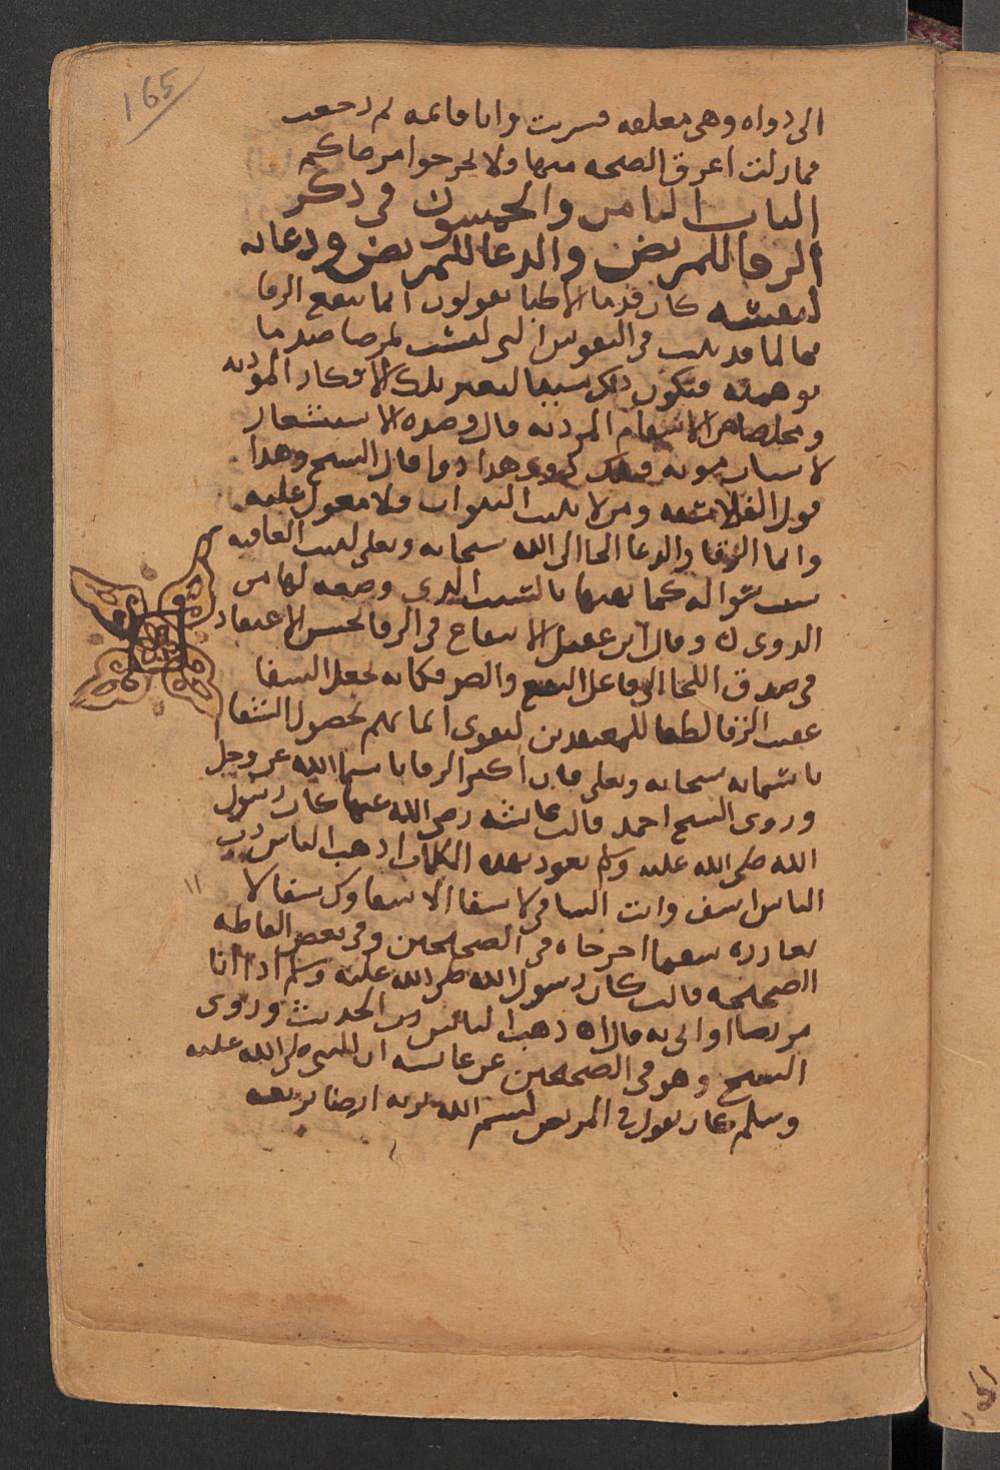 165
الى دواه وهى معلقه فسربت وانا قايمه ثم رجعت
فما زلت اعرف الصحه منها ولا تخرجوا مرضاكم
الباب الثامن والخمسون فى ذكر
الرقا للمريض والدعا للمريض ودعايه
لنفسه كان قدما الاطبا يقولون انما تنفع الرقا
بها لما قد يثبت فى النفوس التى
توهمته فيكون ذلك سببا لتغير تلك الافكار المؤذيه
ومخلصا من الاسقام المرديه قال وضده الاستشعار
هذا دوا قال الشيخ وهذا
قول الفلاسفه ومن لا يثبت النبوات ولا معول عليه
وانما الرقا والدعا التجا الى الله سبحانه وتعلى ليهب العافيه
بسبب سواله كما يهبها بالتسبب الذى وضعه لها من
الدوى ن وقال ابن عقيل الانتفاع فى الرقا لحسن الاعتقاد
فى صدق اللجا الى فاعل النفع والضر فكانه يجعل الشفا
عقيب الرقا لطفا للمعتقدين ليقوى ايمانهم بحصول الشفا
باسمايه سبحانه وتعلى فان اكثر الرقا باسما الله عز وجل
وروى الشيخ احمد قالت عائشه رضى الله عنها كان رسول
الله صلى الله عليه وسلم يعوذ بهذه الكلمات اذهب الباس رب
الناس اشف وانت الشافى لا شفا الا شفاوك شفا لا
يغادر سقما اخرجاه فى الصحيحين وفى بعض الفاظه
الصحيحه قالت كان رسول الله صلى الله عليه وسلم اذا اتا
مريضا او اتى به قال اذهب الباس رب الحديث وروى
الشيخ وهو فى الصحيحين عن عائشه ان النبى صلى الله عليه
وسلم كان يقول فى المريض بسم الله تربه ارضنا بريقه